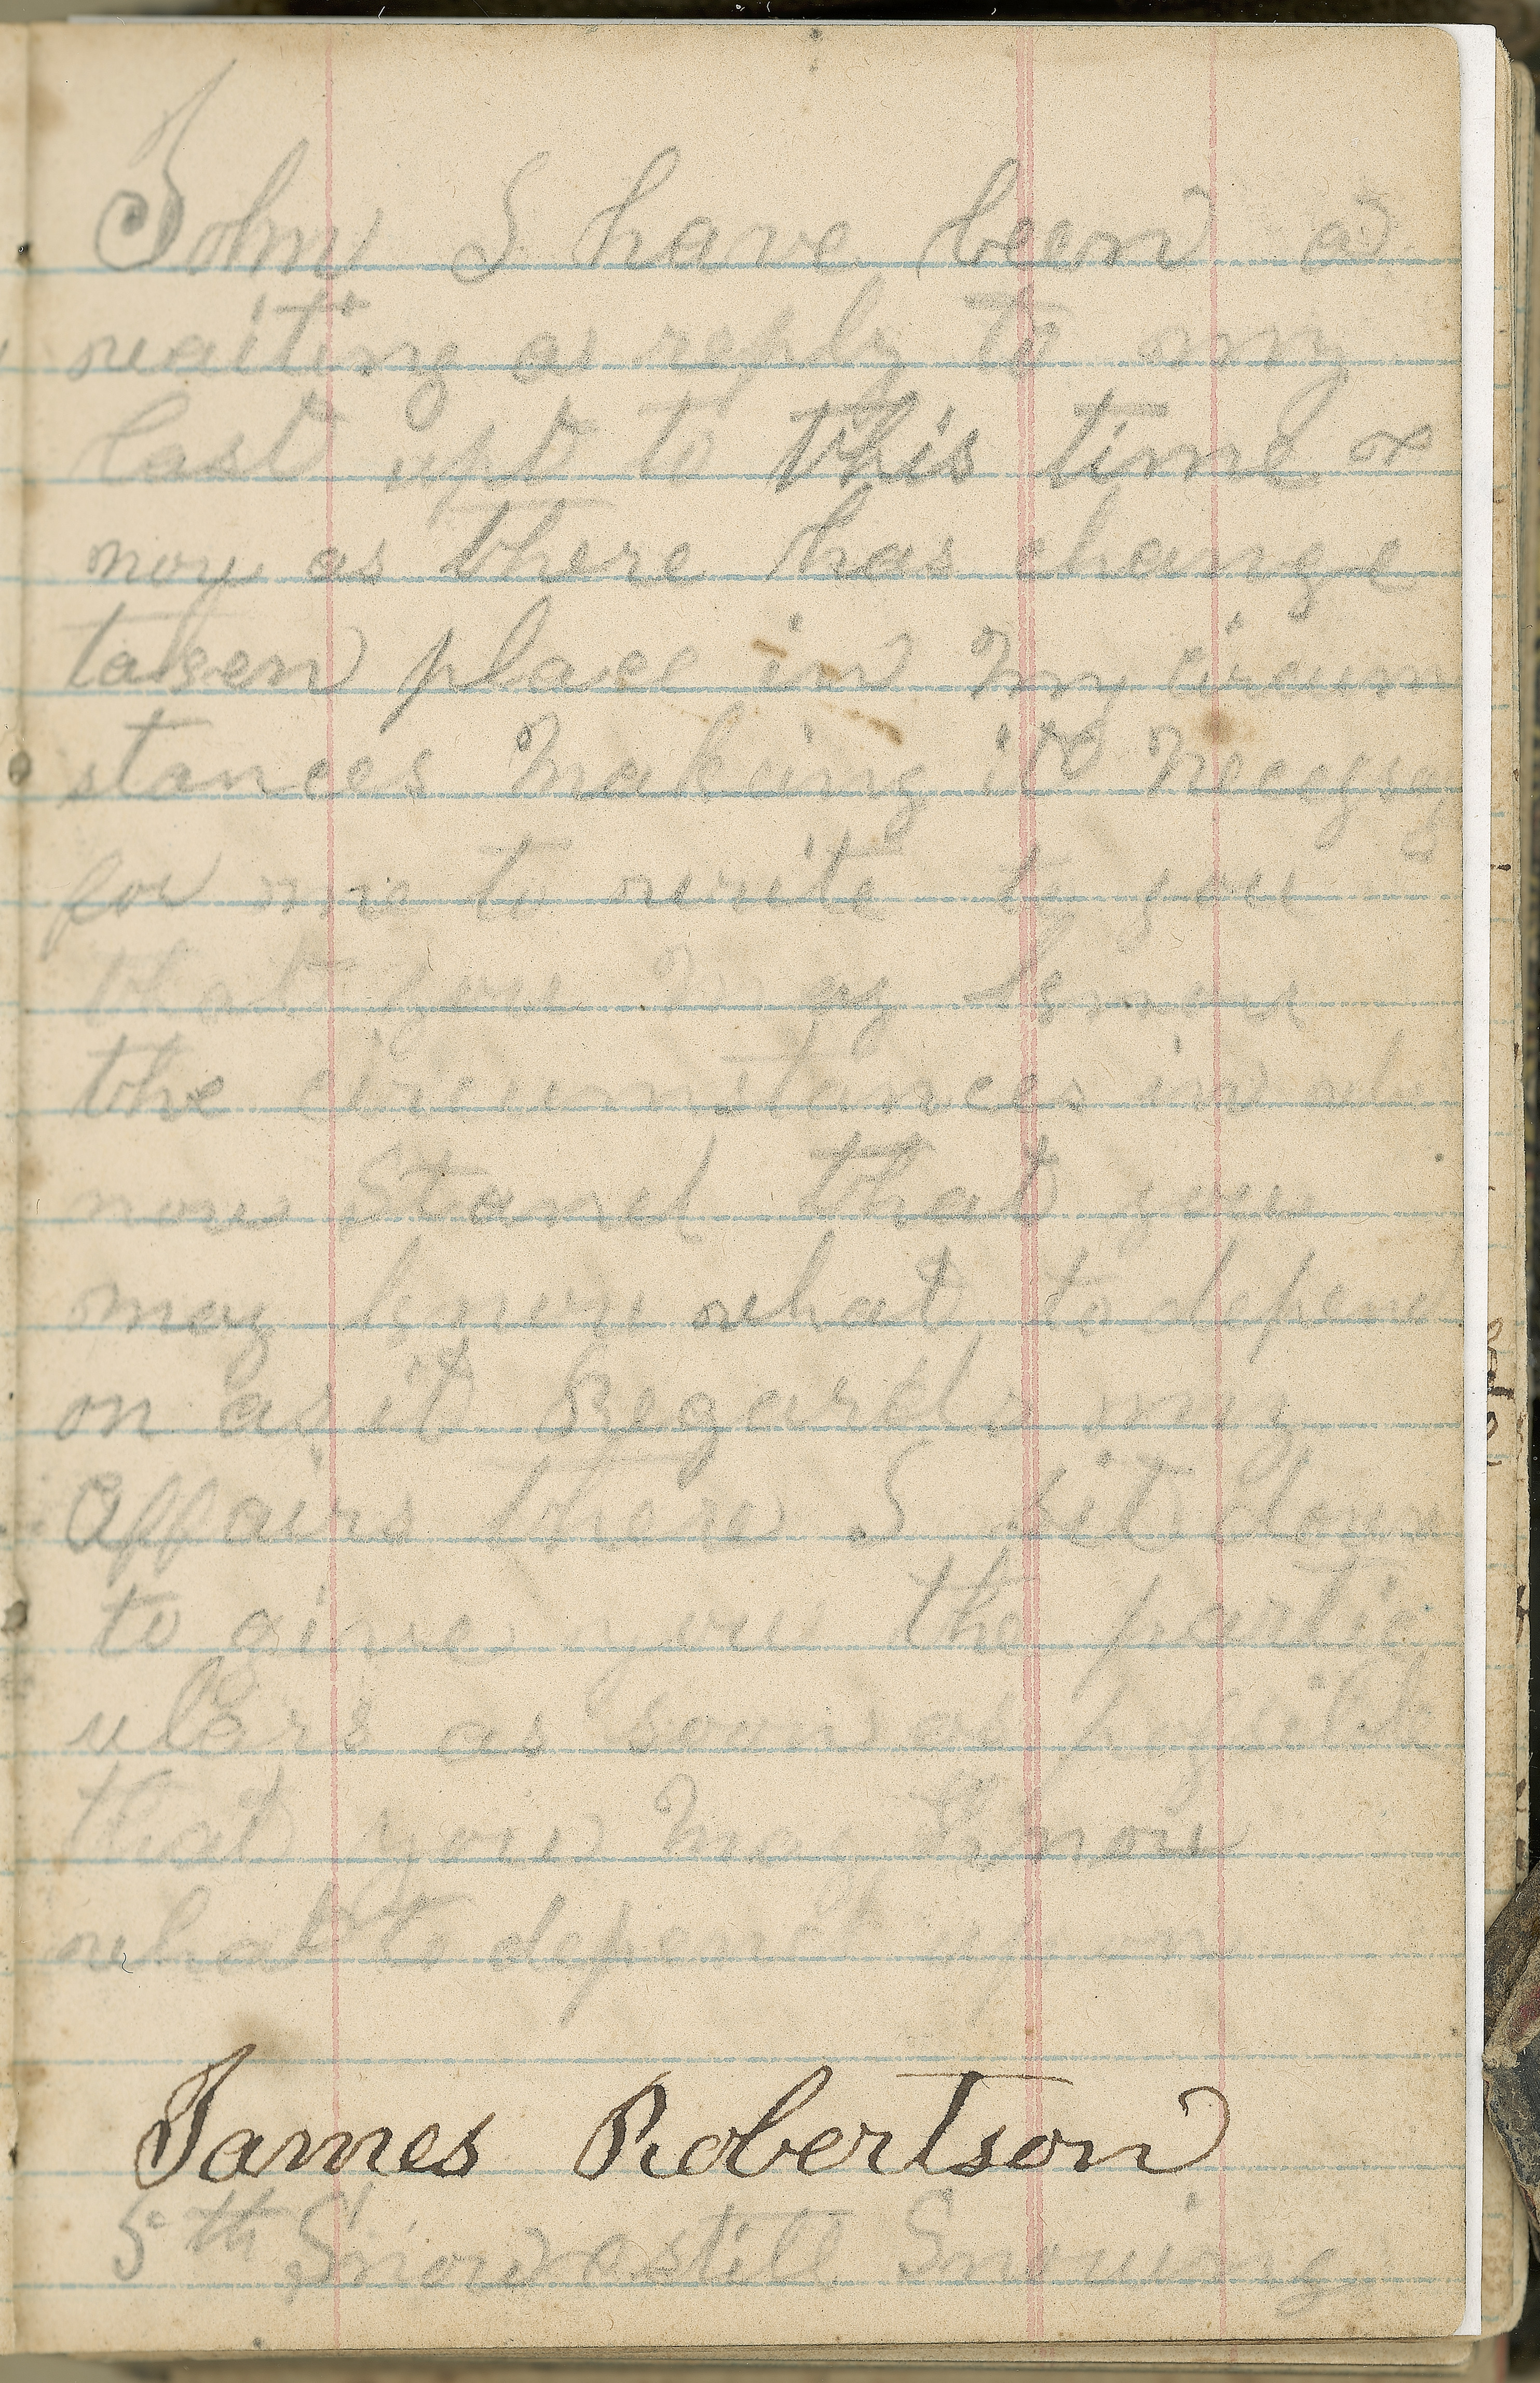 John I have been a
waiting a reply to my
last upt to this time &
now as there has change
taken place in my circum
stances making it necessa
for me to write to you
that you may know
the circumstances in
now Stand that you
may know what to depend
on as it Regards my
Affairs there I sit down
to give you the partic
ulars as soon as possible
that you may Know
what to depend upon
James Robertson
5th Snow & still Snowing